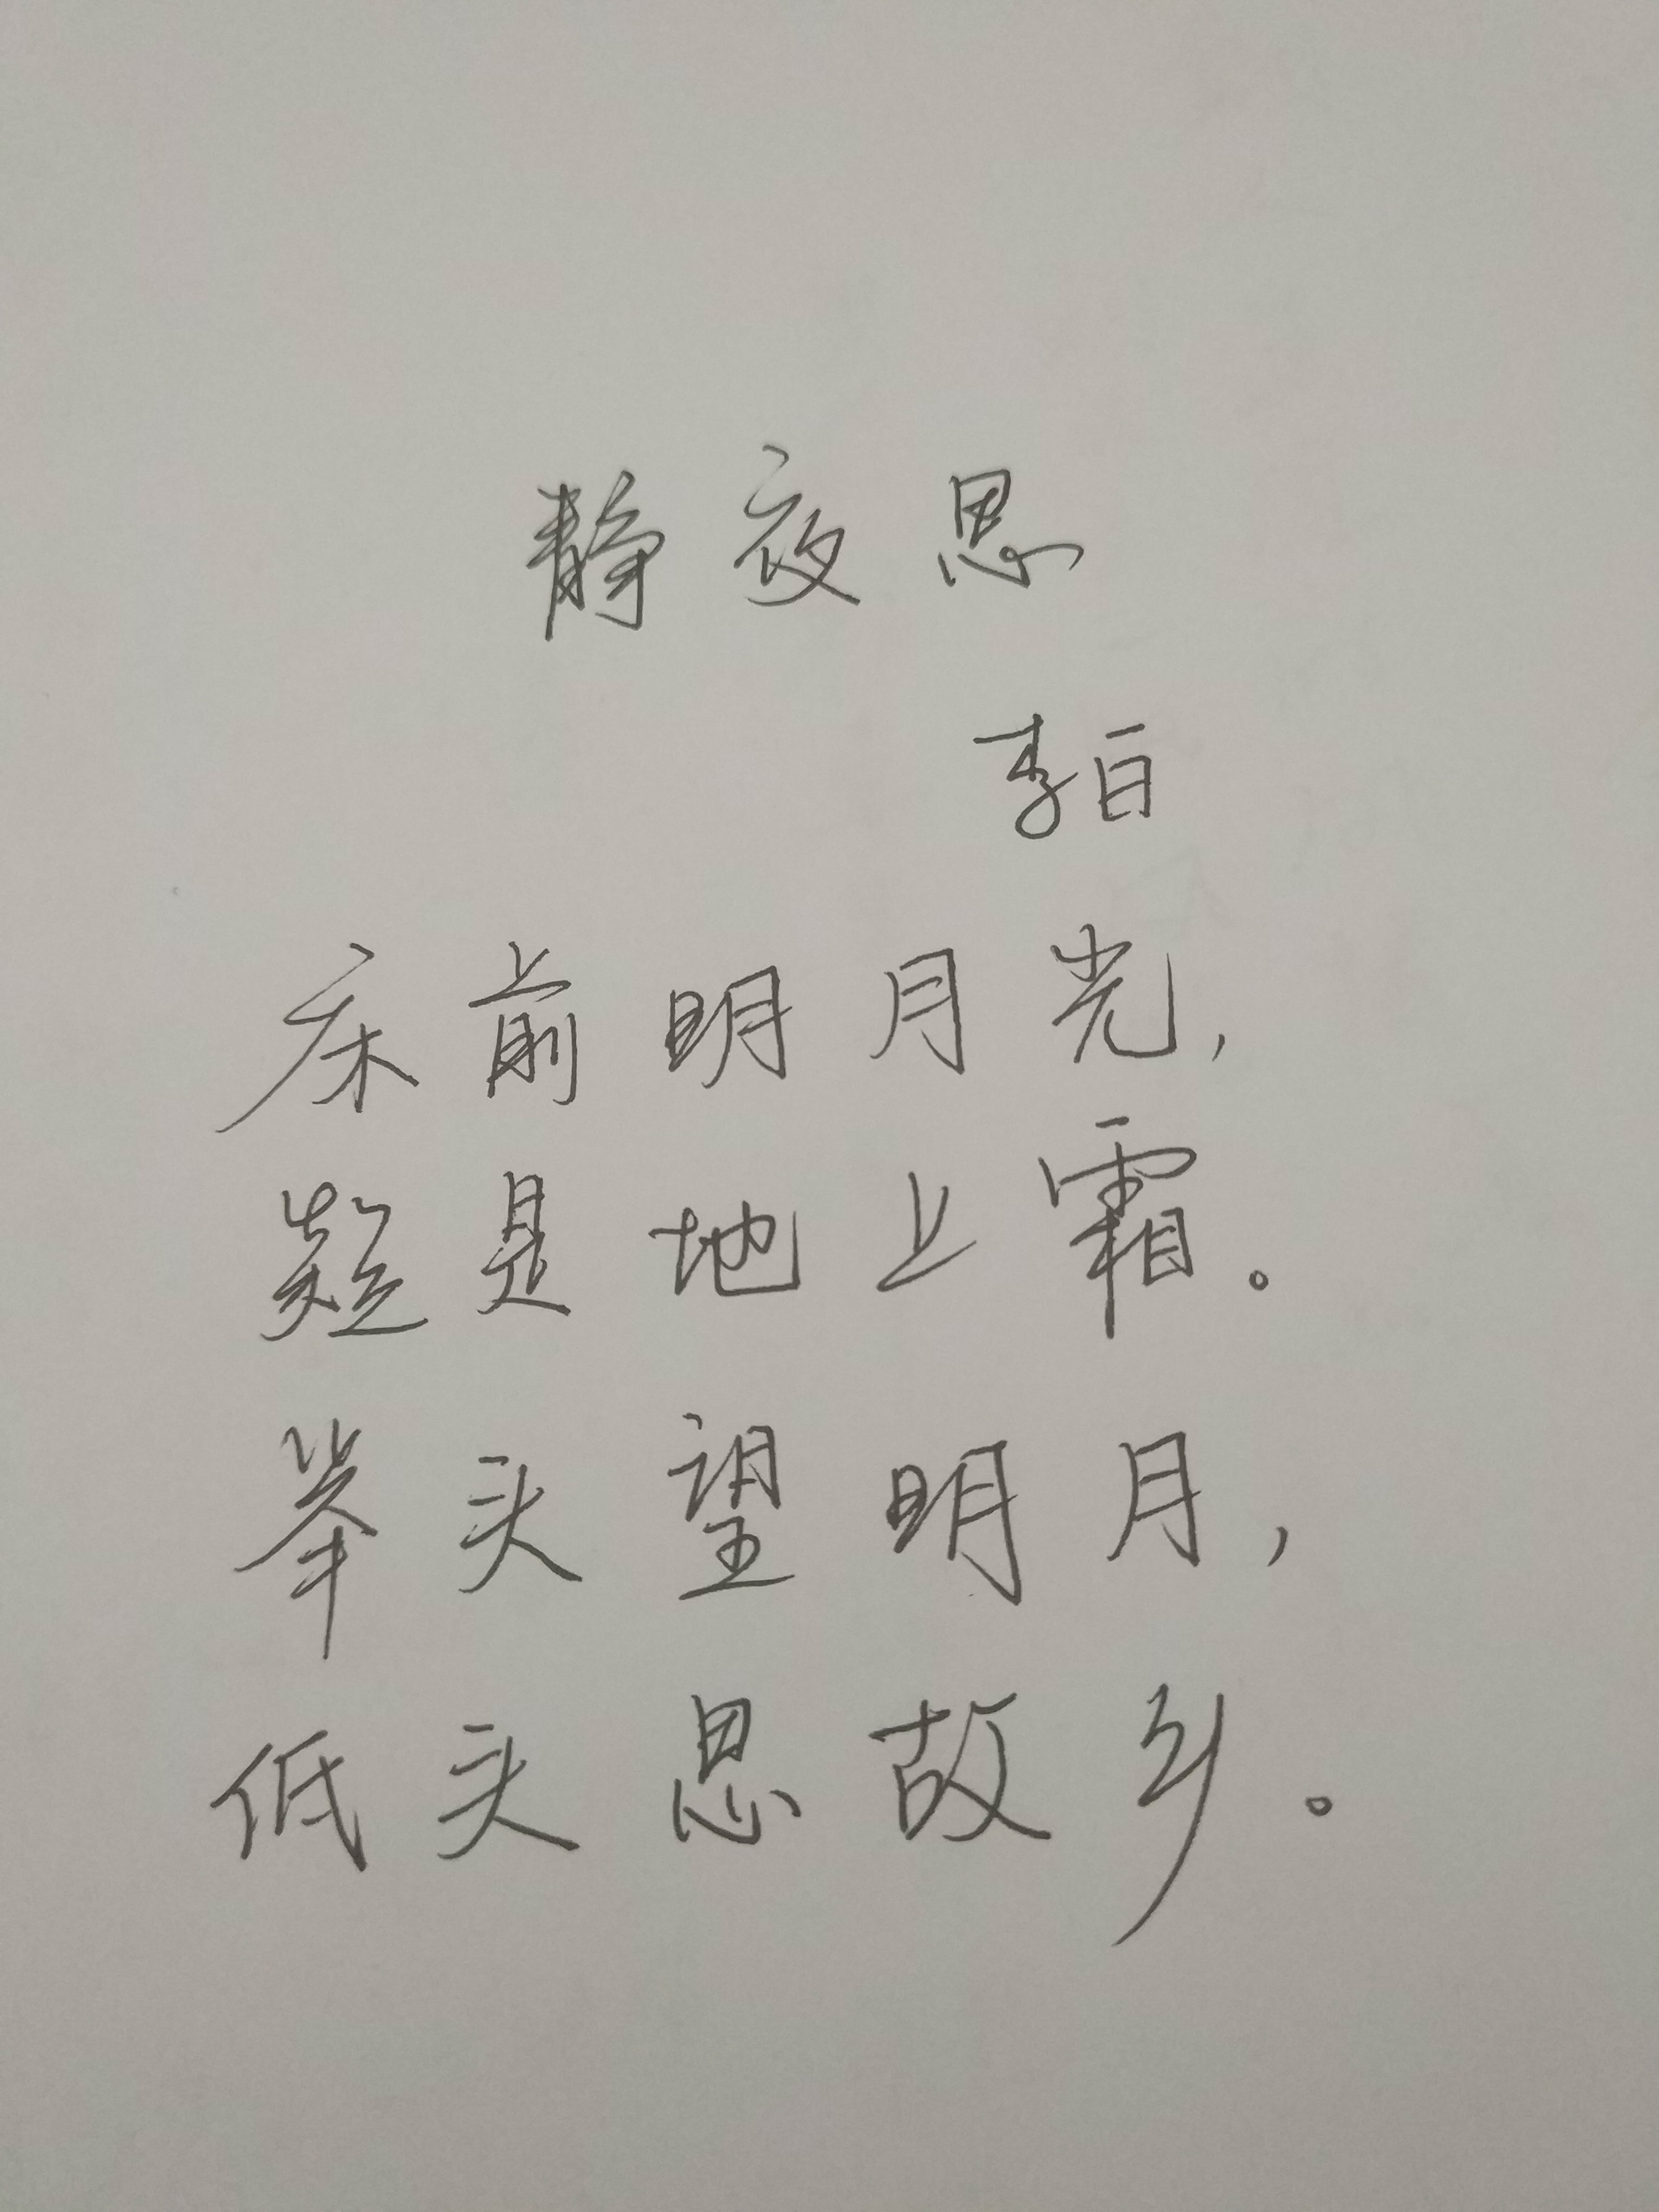 静夜思
李白
床前明月光,
疑是地上霜。
举头望明月,
低头思故乡。